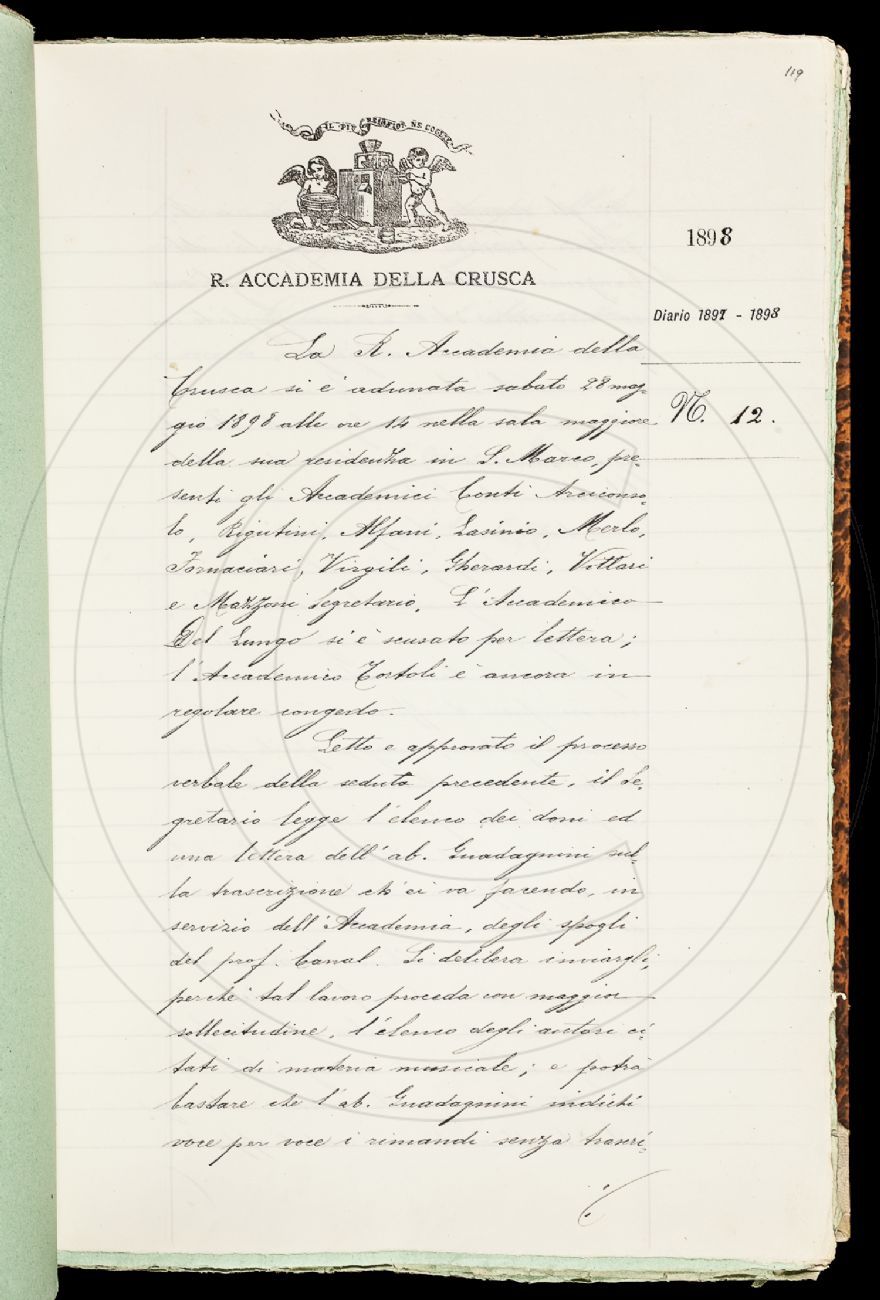 119
IL PIÙ BEL FIOR NE COGLIE
1898
R. ACCADEMIA DELLA CRUSCA
Diario 1897 - 1898
La R. Accademia della
Crusca si è adunata sabato 28 mag-
gio 1898 alle ore 14 nella sala maggiore
N. 12.
della sua residenza in S. Marco, pre-
senti gli Accademici Conti Arciconso-
lo, Rigutini, Alfani, Lasinio, Merlo,
Fornaciari, Virgili, Gherardi, Villari
e Mazzoni Segretario. L'Accademico
Del Lungo si è scusato per lettera;
l'Accademico Tortoli è ancora in
regolare congedo.
Letto e approvato il processo
verbale della seduta precedente, il Se-
gretario legge l'elenco dei doni ed
una lettera dell'ab. Guadagnini sul-
la trascrizione ch'ei va facendo, in
servizio dell'Accademia, degli spogli
del prof. Canal. Si delibera inviargli,
perchè tal lavoro proceda con maggior
sollecitudine, l'elenco degli autori ci-
tati di materia musicale; e potrà
bastare che l'ab. Guadagnini indichi
voce per voce i rimandi senza trascri-